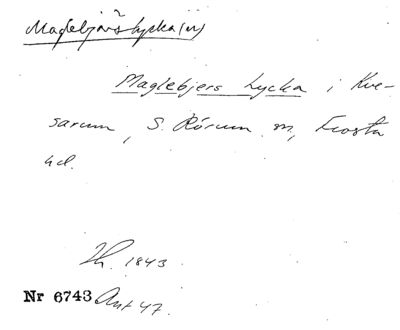 Maglebjärs lycka(n)
Maglebjers Lycka i Kve-
sarum, S. Rörum sn, Frosta
hd.
1843
Nr 6743 Ant 47.